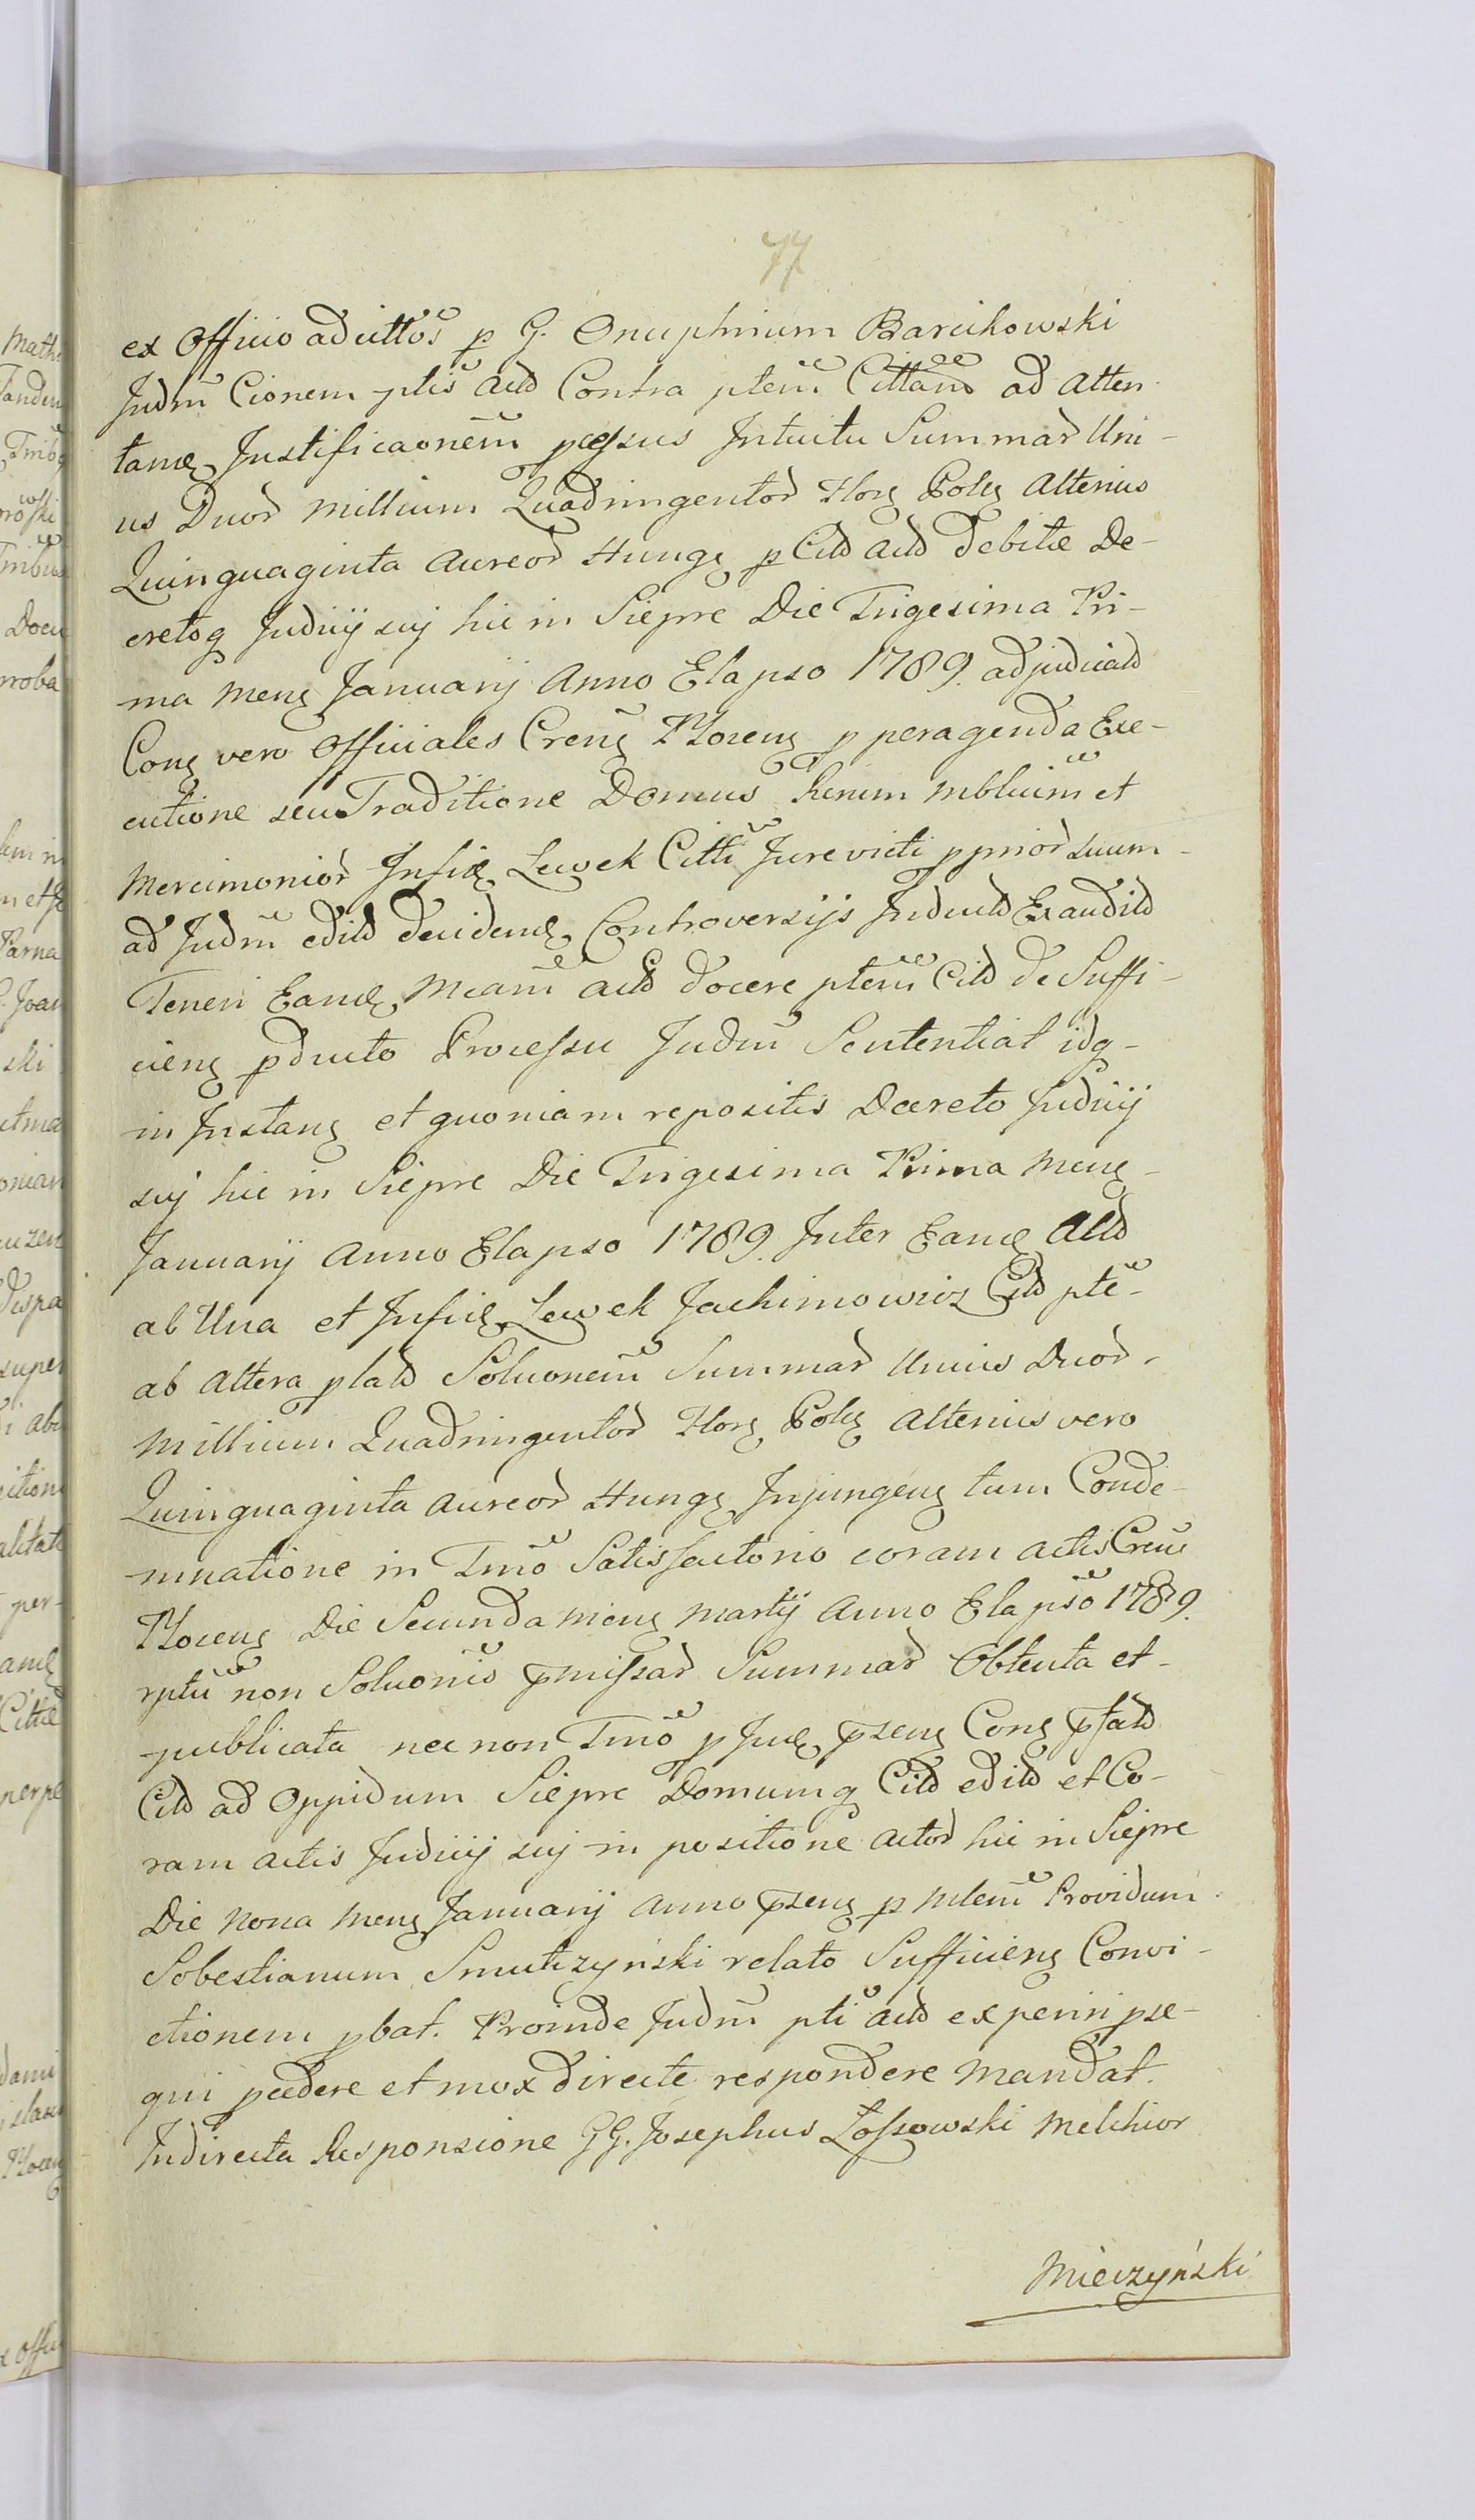 77
ex Officio adcittos p G. Onuphrium Barcikowski
Judm Cionem ptis actd Contra ptem Cittam ad Atten-
tam Justificaonem pcessus Intuitu Summar Uni-
us Duor Millium Quadringentor Flor Pol Alterius
Quinquaginta Aureor Hung p Citd actd debitæ De-
cretoq Judicij sij hic in Sierpc Die Trigesima Pri-
ma Mens Januarij Anno Elapso 1789. adjudicatd
Cons vero Officiales Crens Plocens p peragenda Exe-
cutione seu Traditione Domus Rerum mblium et
Mercimonior Infid Lewek Citti Jurevicti p prior suum-
ad Judm edild decidend Controversijs Inductd Exaudild
Teneri Eand Meam actd docere ptem Citd de Suffi-
ciens pducto Processu Judm Sententiat idq-
in Instans et quoniam repositis Decreto Judicij
sij hic in Sierpc Die Trigesima Prima Mens-
Januarij Anno Elapso 1789. Inter Eand Actd
ab Una et Infid Lewek Jachimowicz Citd pte-
ab Altera platd Soluonem Summar Unius Duor-
Millium Quadringentor Flor Pol Alterius vero
Quinquaginta Aureor Hung Injungens tum Conde-
mnatione in Tmo Satisfactorio coram actis Crens
Plocens Die Secunda Mens Martij Anno Elapso 1789.
rptu non Soluonis pmissar Summar Obtenta et-
publicata nec non Tmo p Jud psens Cons pfatd
Citd ad Oppidum Sierpc Domumq Citd edild et Co-
ram actis Judicij sij in positione actor hic in Sierpc
Die Nona Mens Januarij Anno psens p Mlem Providum
Sobestianum Smutczyński relato Sufficiens Convi-
ctionem pbat. Proinde Judm pti actd experiri pse-
qui pcedere et mox directe respondere Mandat.
Indirecta Responsione GG. Josephus Łossowski Melchior
Mieczyński